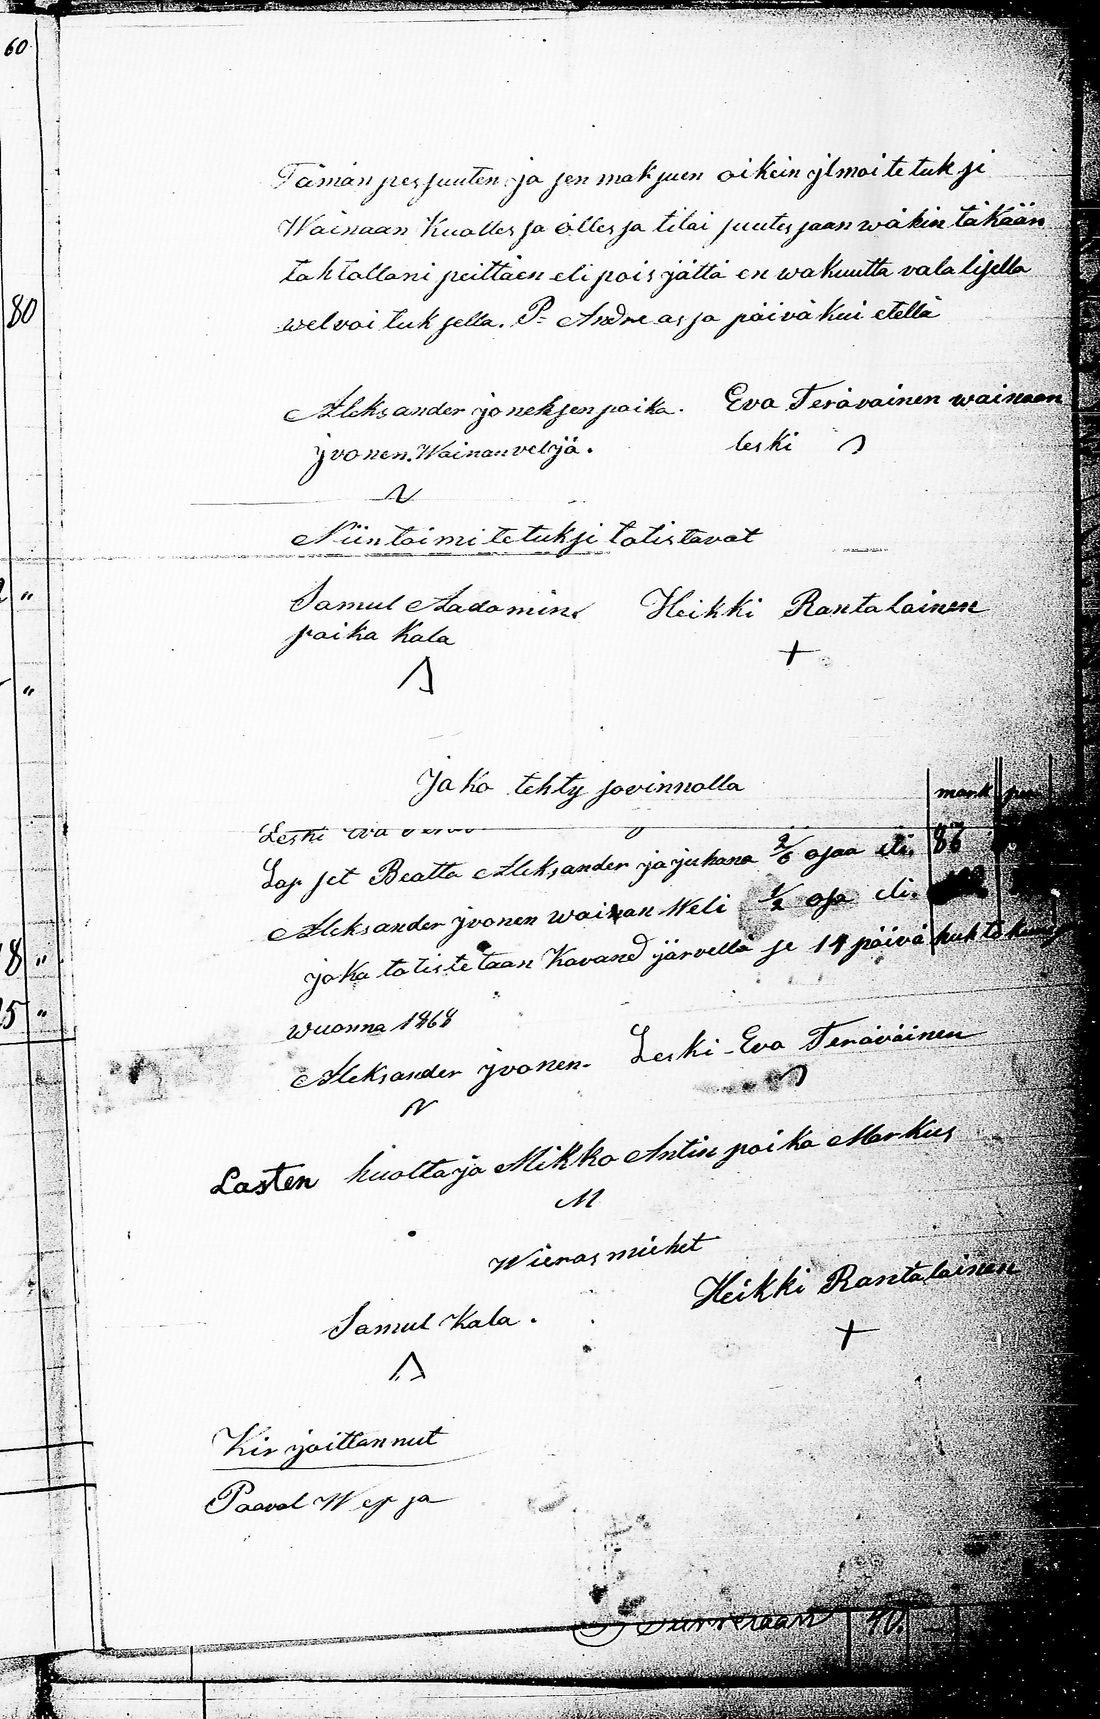 60
80
Tämän pesjuuten ja sen maksuen oikein ylmoitetuksi
Wainaan Kuolles sa olles sa tilai suutes saan wäkin täkään
tahtollani peittäen eli pois jättä en wakuutta valalisella
welvoituksella. P= Andreas sa päivä kui etellä
Aleksander joneksen poika. Eva Teräväinen wainaan
yvonen. Wainan veljä. leski
Niin toimitetuksi totistavat
Samul Aadamin Heikki Rantalainen
poika Kala
+
Jako tehty sovinnolla
mark
Leski Eva
Lapset Beatta Aleksander ja juhana 2/6 osaa eli. 87
Aleksander yvonen wainan Weli 1/2 osa eli.
joka totistetaan Kavandjärvellä se 14 päivä huhtokuu
wuonna 1868
Aleksander yvonen. Leski Eva Teräväinen
N
Lasten huoltaja Mikko Antin poika Markus
M
Wieras miehet
Samul Kala. Heikki Rantalainen
+
Kirjoittannut
Paaval Wepsa
18 "
25 "
40.